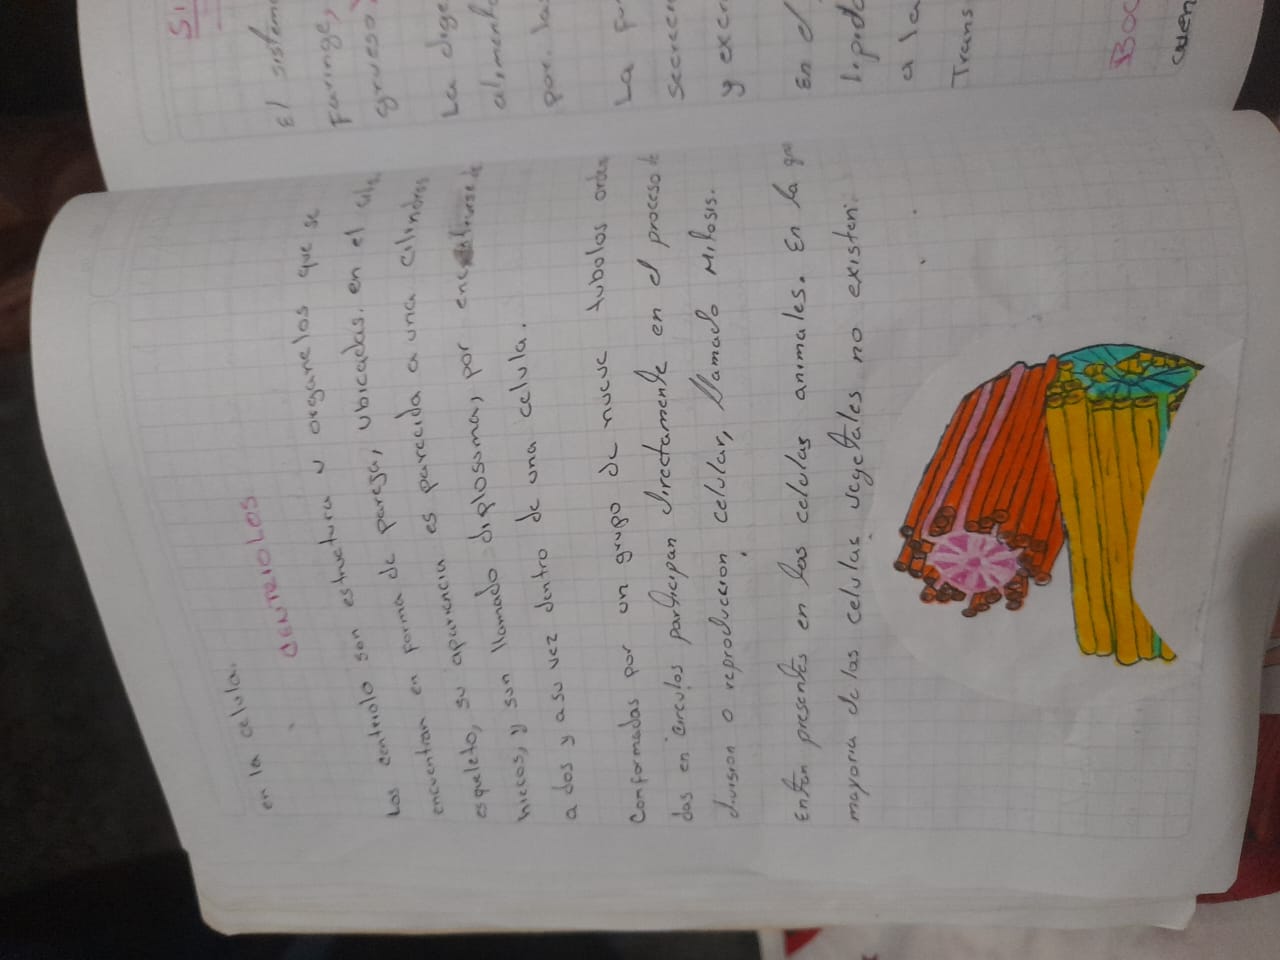 en la celula.
CENTRIOLOS
Los centriolo son estructura u organelos que se
encuentran en forma de pareja, ubicadas. en el
esqueleto, su apariencia es parecida a una cilindros
hiecos, y son llamado diplosoma, por
a dos y a su vez dentro de una celula.
Conformadas por un grupo de nueve tubolos orde
das en circulos participan directamente en el proceso de
division o reproduccion celular, llamado Mitosis.
Entan presentes en las celulas animales. En la
mayoria de las celulas vegetales no existen.
El sistem
Faringe,
grueso,
La dige
alimento
por. las
La fu
secrecio
y excre
En el
lipido
a la
Trans
Boc